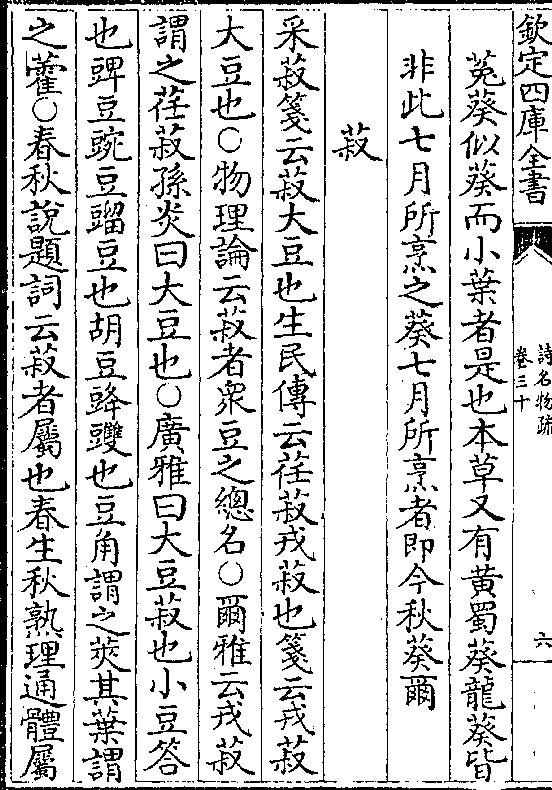 欽定四庫全書
詩名物疏
卷三十
六
菟葵似葵而小葉者是也本草又有黄蜀葵龍葵皆
非此七月所烹之葵七月所烹者即今秋葵爾
菽
采菽箋云菽大豆也生民傳云荏菽戎菽也箋云戎菽
大豆也○物理論云菽者衆豆之總名○爾雅云戎菽
謂之荏菽孫炎曰大豆也○廣雅曰大豆菽也小豆答
也豍豆豌豆䝁豆也胡豆䜶䝄也豆角謂之莢其葉謂
之藿○春秋說題詞云菽者屬也春生秋熟理通體屬